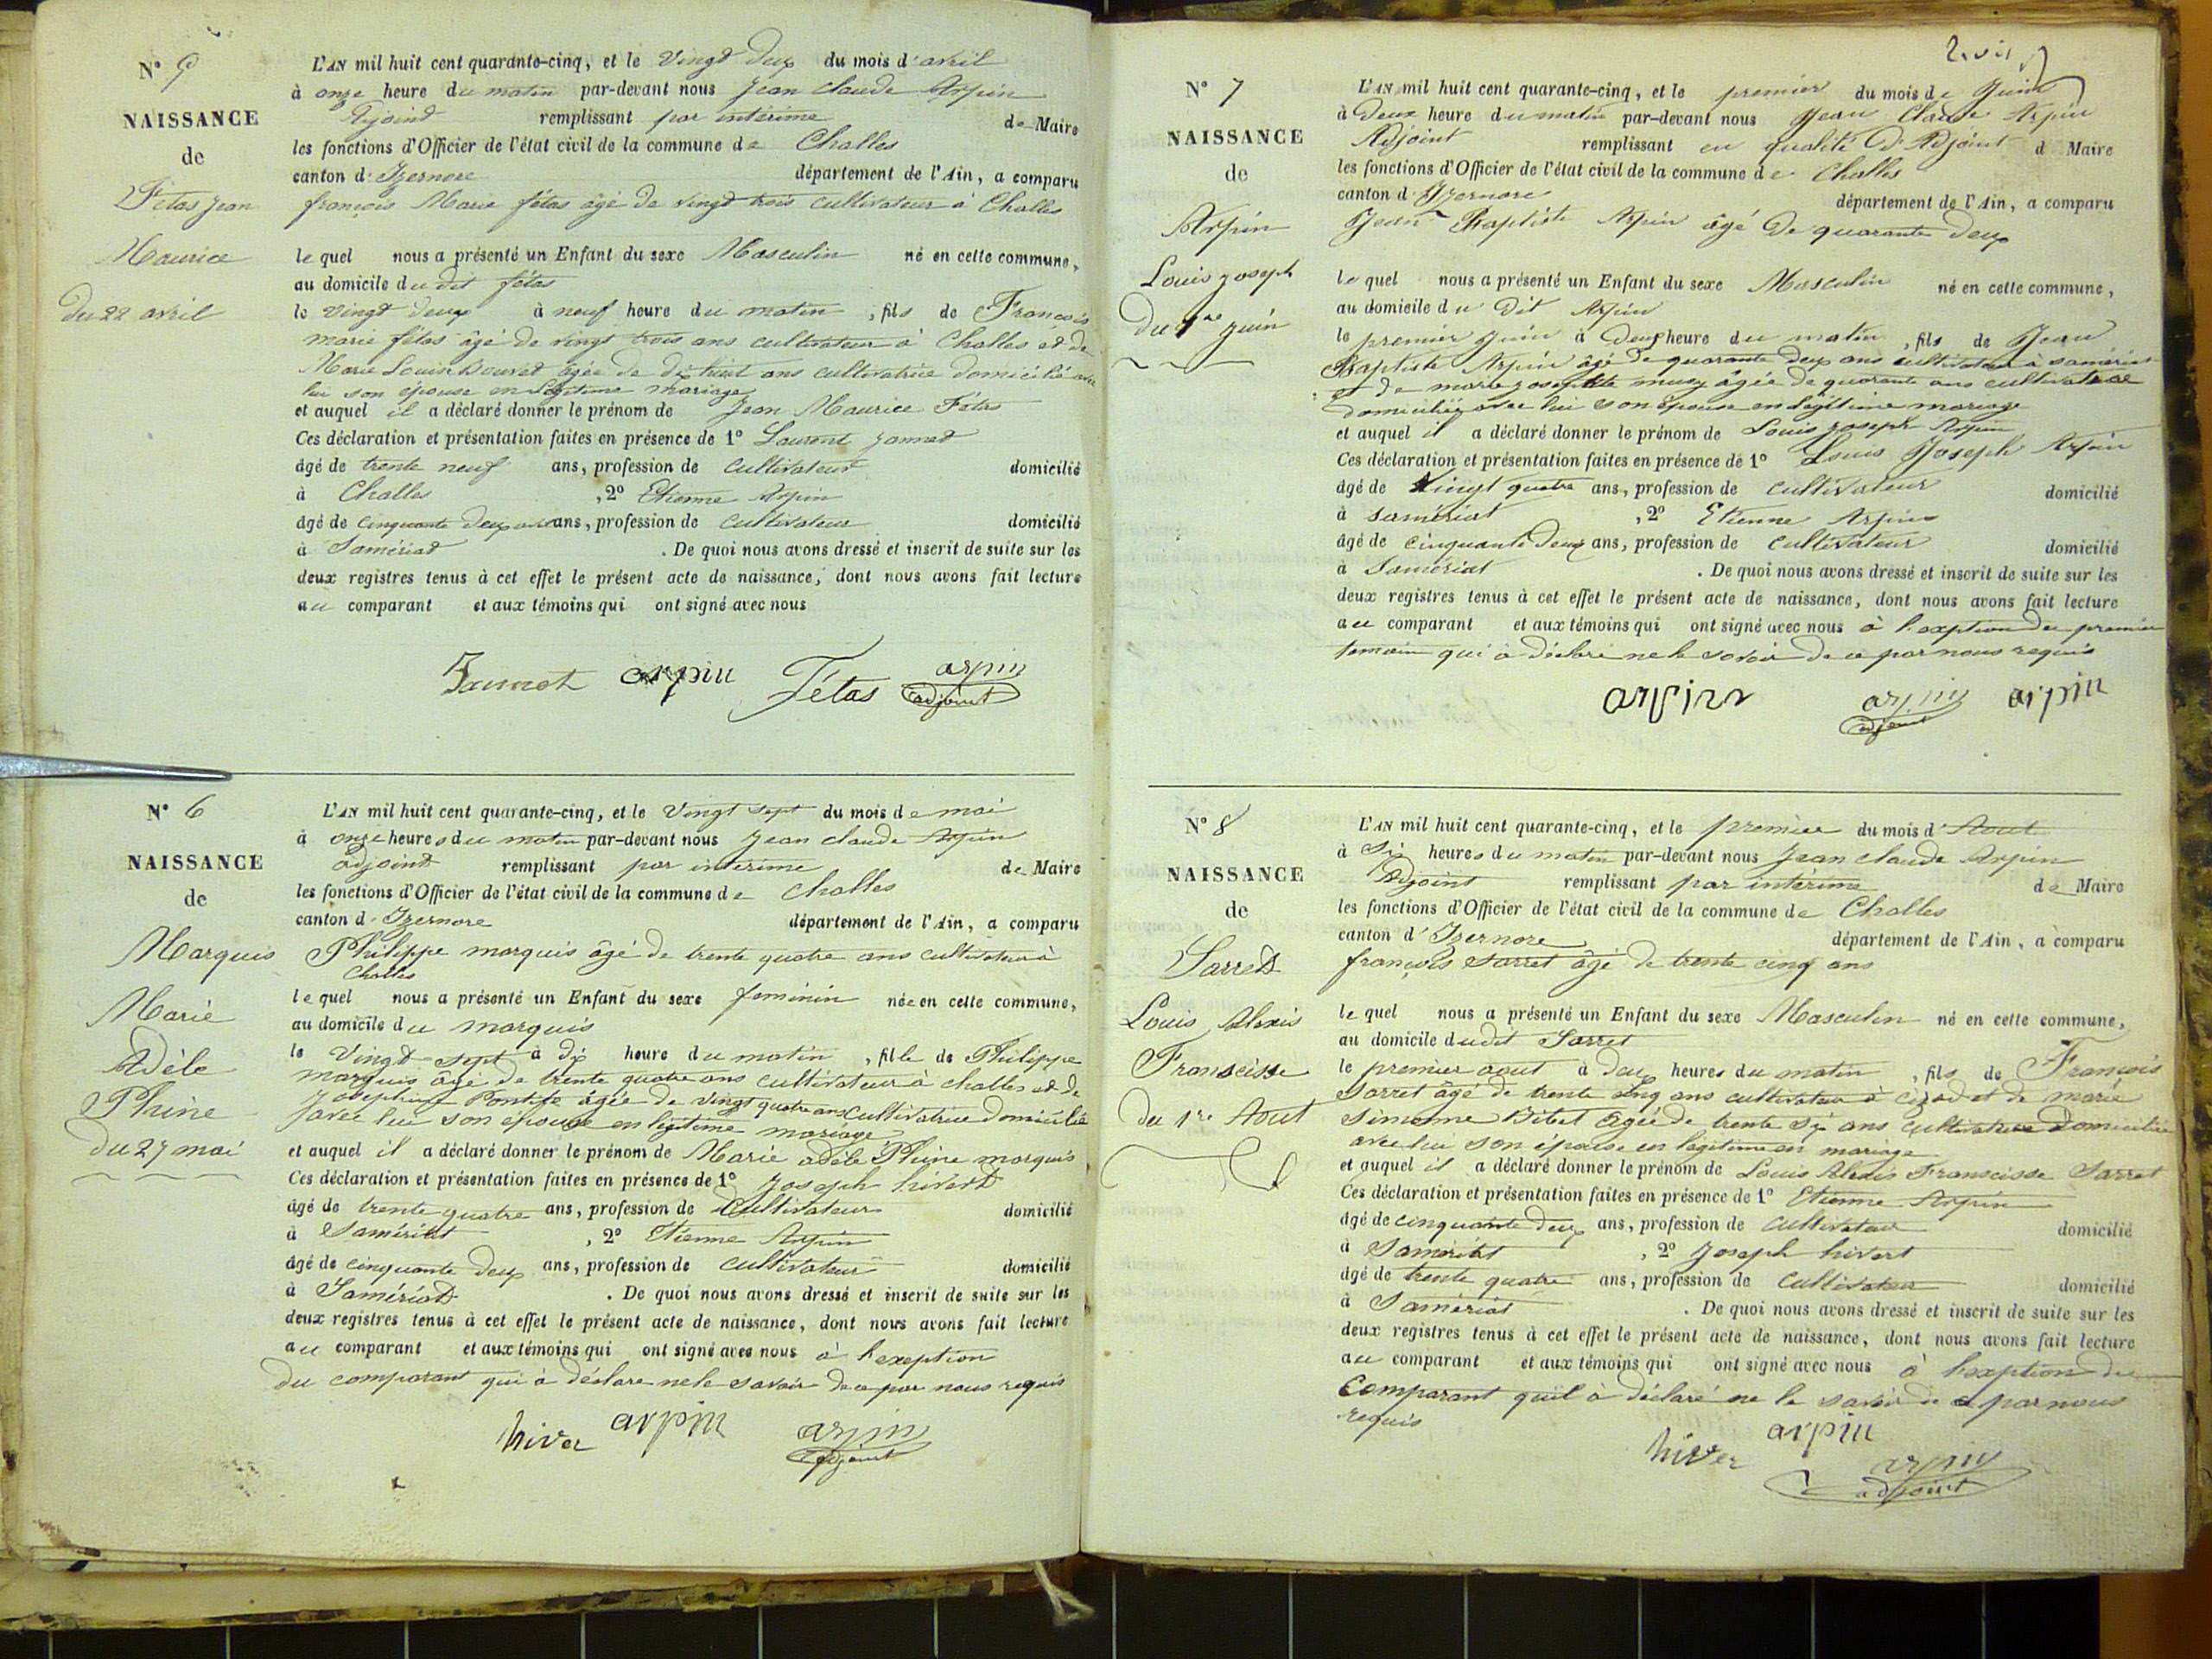 N° 5
NAISSANCE
de
Fétas Jean
Maurice
du 22 avril
L'AN mil huit cent quarante-cinq, et le vingt deux du mois d'avril
à onze heure du matin par-devant nous Jean Claude Arpin
Adjoint remplissant par intérime de Maire
les fonctions d'Officier de l'état civil de la commune de Challes
canton d'Izernore département de l'Ain, a comparu
françois Marie fétas âgé de vingt trois cultivateur à Challes
lequel nous a présenté un Enfant du sexe Masculin né en cette commune,
au domicile du dit fétas
le vingt deux à neuf heure du matin, fils de François
marie fétas âgé de vingt trois ans cultivateur à Challes et de
Marie Louise Bouvet âgée de dix huit ans cultivatrice domicilié avec
lui son épouse en légitime mariage
et auquel il a déclaré donner le prénom de Jean Maurice Fétas
Ces déclaration et présentation faites en présence de 1° Laurent Jannet
âgé de trente neuf ans, profession de cultivateur domicilié
à Challes, 2° Etienne Arpin
âgé de cinquante deux ans ans, profession de cultivateur domicilié
à Samériat. De quoi nous avons dressé et inscrit de suite sur les
deux registres tenus à cet effet le présent acte de naissance, dont nous avons fait lecture
au comparant et aux témoins qui ont signé avec nous
Jannet arpin Fétas arpin
adjoint
N° 6
NAISSANCE
de
Marquis
Marie
Adèle
Phine
du 27 mai
L'AN mil huit cent quarante-cinq, et le vingt sept du mois de mai
à onze heures du matin par-devant nous Jean claude Arpin
adjoint remplissant par intérime de Maire
les fonctions d'Officier de l'état civil de la commune de Challes
canton d'Izernore département de l'Ain, a comparu
Philippe marquis âgé de trente quatre ans cultivateur à
Challes
lequel nous a présenté un Enfant du sexe feminin née en cette commune,
au domicile du marquis
le vingt sept à dix heure du matin, fille de Philippe
marquis âgé de trente quatre ans cultivateur à challes et de
Josephine Pontife âgée de vingt quatre ans cultivatrice domicilié
avec lui son épouse en légitime mariage
et auquel il a déclaré donner le prénom de Marie adèle Phine marquis
Ces déclaration et présentation faites en présence de 1° Joseph hivert
âgé de trente quatre ans, profession de Cultivateur domicilié
à Samériat, 2° Etienne Arpin
âgé de cinquante deux ans, profession de cultivateur domicilié
à Samériat. De quoi nous avons dressé et inscrit de suite sur les
deux registres tenus à cet effet le présent acte de naissance, dont nous avons fait lecture
au comparant et aux témoins qui ont signé avec nous à l'exeption
du comparant qui à déclare ne le savoir de ce par nous requis
hiver arpin arpin
adjoint
N° 7
NAISSANCE
de
Arpin
Louis Joseph
du 1er juin
L'AN mil huit cent quarante-cinq, et le premier du mois de Juin
à Deux heure du matin par-devant nous Jean Claude Arpin
Adjoint remplissant en qualité d'Adjoint d Maire
les fonctions d'Officier de l'état civil de la commune de Challes
canton d'Izernore département de l'Ain, a comparu
Jean Baptiste Arpin âgé de quarante deux
lequel nous a présenté un Enfant du sexe Masculin né en cette commune,
au domicile du dit Arpin
le premier Juin à deux heure du matin, fils de Jean
Baptiste Arpin âgé de quarante deux ans cultivateur à samériat
et de marie josephte musy âgée de quarante ans cultivatrice
domiciliée avec lui son épouse en légitime mariage
et auquel il a déclaré donner le prénom de Louis joseph Arpin
Ces déclaration et présentation faites en présence de 1° Louis Joseph Arpin
âgé de vingt quatre ans, profession de cultivateur domicilié
à samériat, 2° Etienne Arpin
âgé de cinquante deux ans, profession de cultivateur domicilié
à Samériat. De quoi nous avons dressé et inscrit de suite sur les
deux registres tenus à cet effet le présent acte de naissance, dont nous avons fait lecture
au comparant et aux témoins qui ont signé avec nous à l'exption du premier
temoin qui à déclaré ne le savoir de ce par nous requis
arpin arpin arpin
adjoint
N° 8
NAISSANCE
de
Sarret
Louis Alexis
Franscisse
du 1re Aout
L'AN mil huit cent quarante-cinq, et le premier du mois d'Aout
à Six heures du matin par-devant nous Jean claude Arpin
Adjoint remplissant par intérime de Maire
les fonctions d'Officier de l'état civil de la commune de Challes
canton d'Izernore département de l'Ain, a comparu
françois Sarret âgé de trente cinq ans
lequel nous a présenté un Enfant du sexe Masculin né en cette commune,
au domicile dudit Sarret
le premier aout à deux heures du matin, fils de François
Sarret âgé de trente cinq ans cultivateur à et de marie
simonne Bitet âgée de trente six ans cultivatrice Domiciliée
avec lui son épouse en légitime en mariage
et auquel il a déclaré donner le prénom de Louis Alexis Franscisse Sarret
Ces déclaration et présentation faites en présence de 1° Etienne Arpin
âgé de cinquante deux ans, profession de cultivateur domicilié
à Samériat, 2° Joseph hivert
âgé de trente quatre ans, profession de cultivateur domicilié
à Samériat. De quoi nous avons dressé et inscrit de suite sur les
deux registres tenus à cet effet le présent acte de naissance, dont nous avons fait lecture
au comparant et aux témoins qui ont signé avec nous à l'exption du
Comparant quil à déclaré ne le savoir de ce par nous
requis
hiver arpin arpin
adjoint